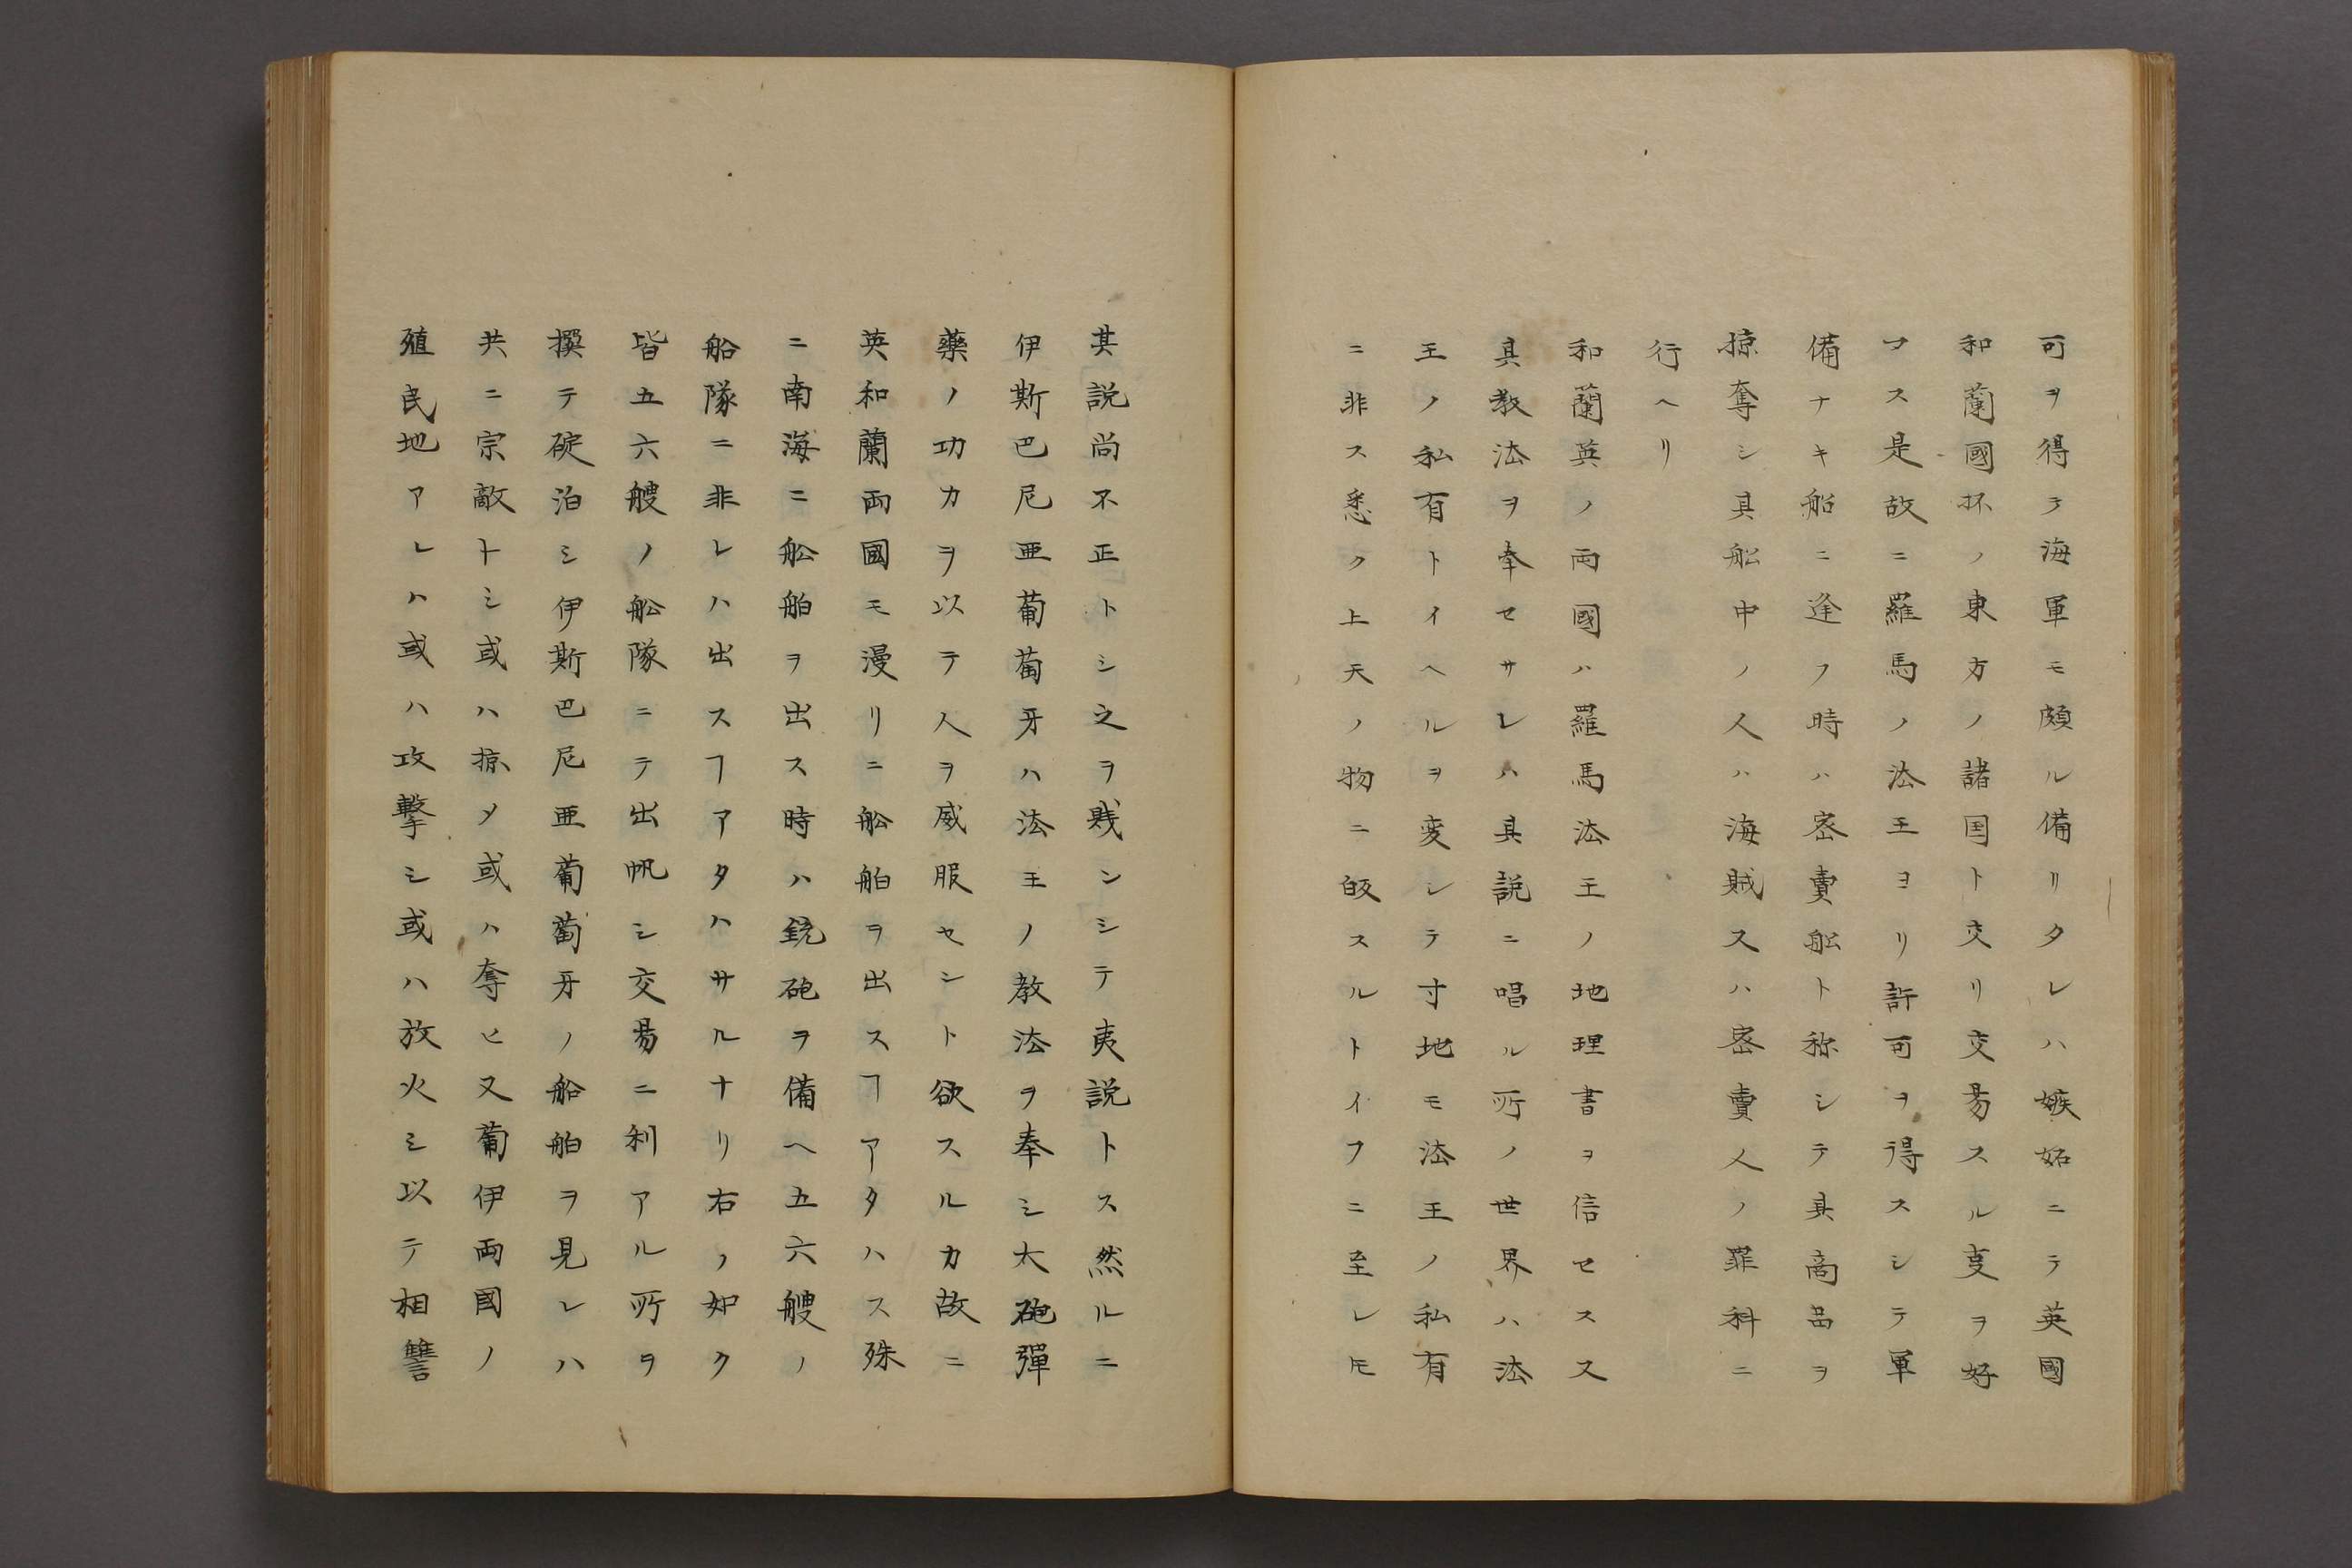 可ヲ得テ海軍モ頗ル備リタレハ嫉妬ニテ英國
和蘭國抔ノ東方ノ諸国ト交リ交昜スル𫝆ヲ好
マス是故ニ羅馬ノ法王ヨリ許可ヲ得スシテ軍
備ナキ船ニ逢フ時ハ密賣舩ト称シテ其商品ヲ
掠奪シ其舩中ノ人ハ海賊又ハ密賣人ノ罪科ニ
行ヘリ
和蘭英ノ両國ハ羅馬法王ノ地理書ヲ信セス又
其教法ヲ奉セサレハ其説ニ唱ル所ノ世界ハ法
王ノ私有トイヘルヲ変シテ寸地モ法王ノ私有
ニ非ス悉ク上天ノ物ニ皈スルトイフニ至レ𪜈
其説尚不正トシ之ヲ賎ンシテ夷説トス然ルニ
伊斯巴尼亜葡萄牙ハ法王ノ教法ヲ奉シ大砲彈
藥ノ功力ヲ以テ人ヲ威服セシト欲スルカ故ニ
英和蘭両國モ漫リニ舩舶ヲ出スヿアタハス殊
ニ南海ニ舩舶ヲ出ス時ハ銃砲ヲ備ヘ五六艘ノ
船隊ニ非レハ出スヿアタハサルナリ右ノ如ク
皆五六艘ノ舩隊ニテ出帆シ交昜ニ利アル所ヲ
撰テ碇泊シ伊斯巴尼亜葡萄牙ノ船舶ヲ見レハ
共ニ宗敵トシ或ハ掠メ或ハ奪ヒ又葡伊両國ノ
殖民地アレハ或ハ攻撃シ或ハ放火シ以テ相讐